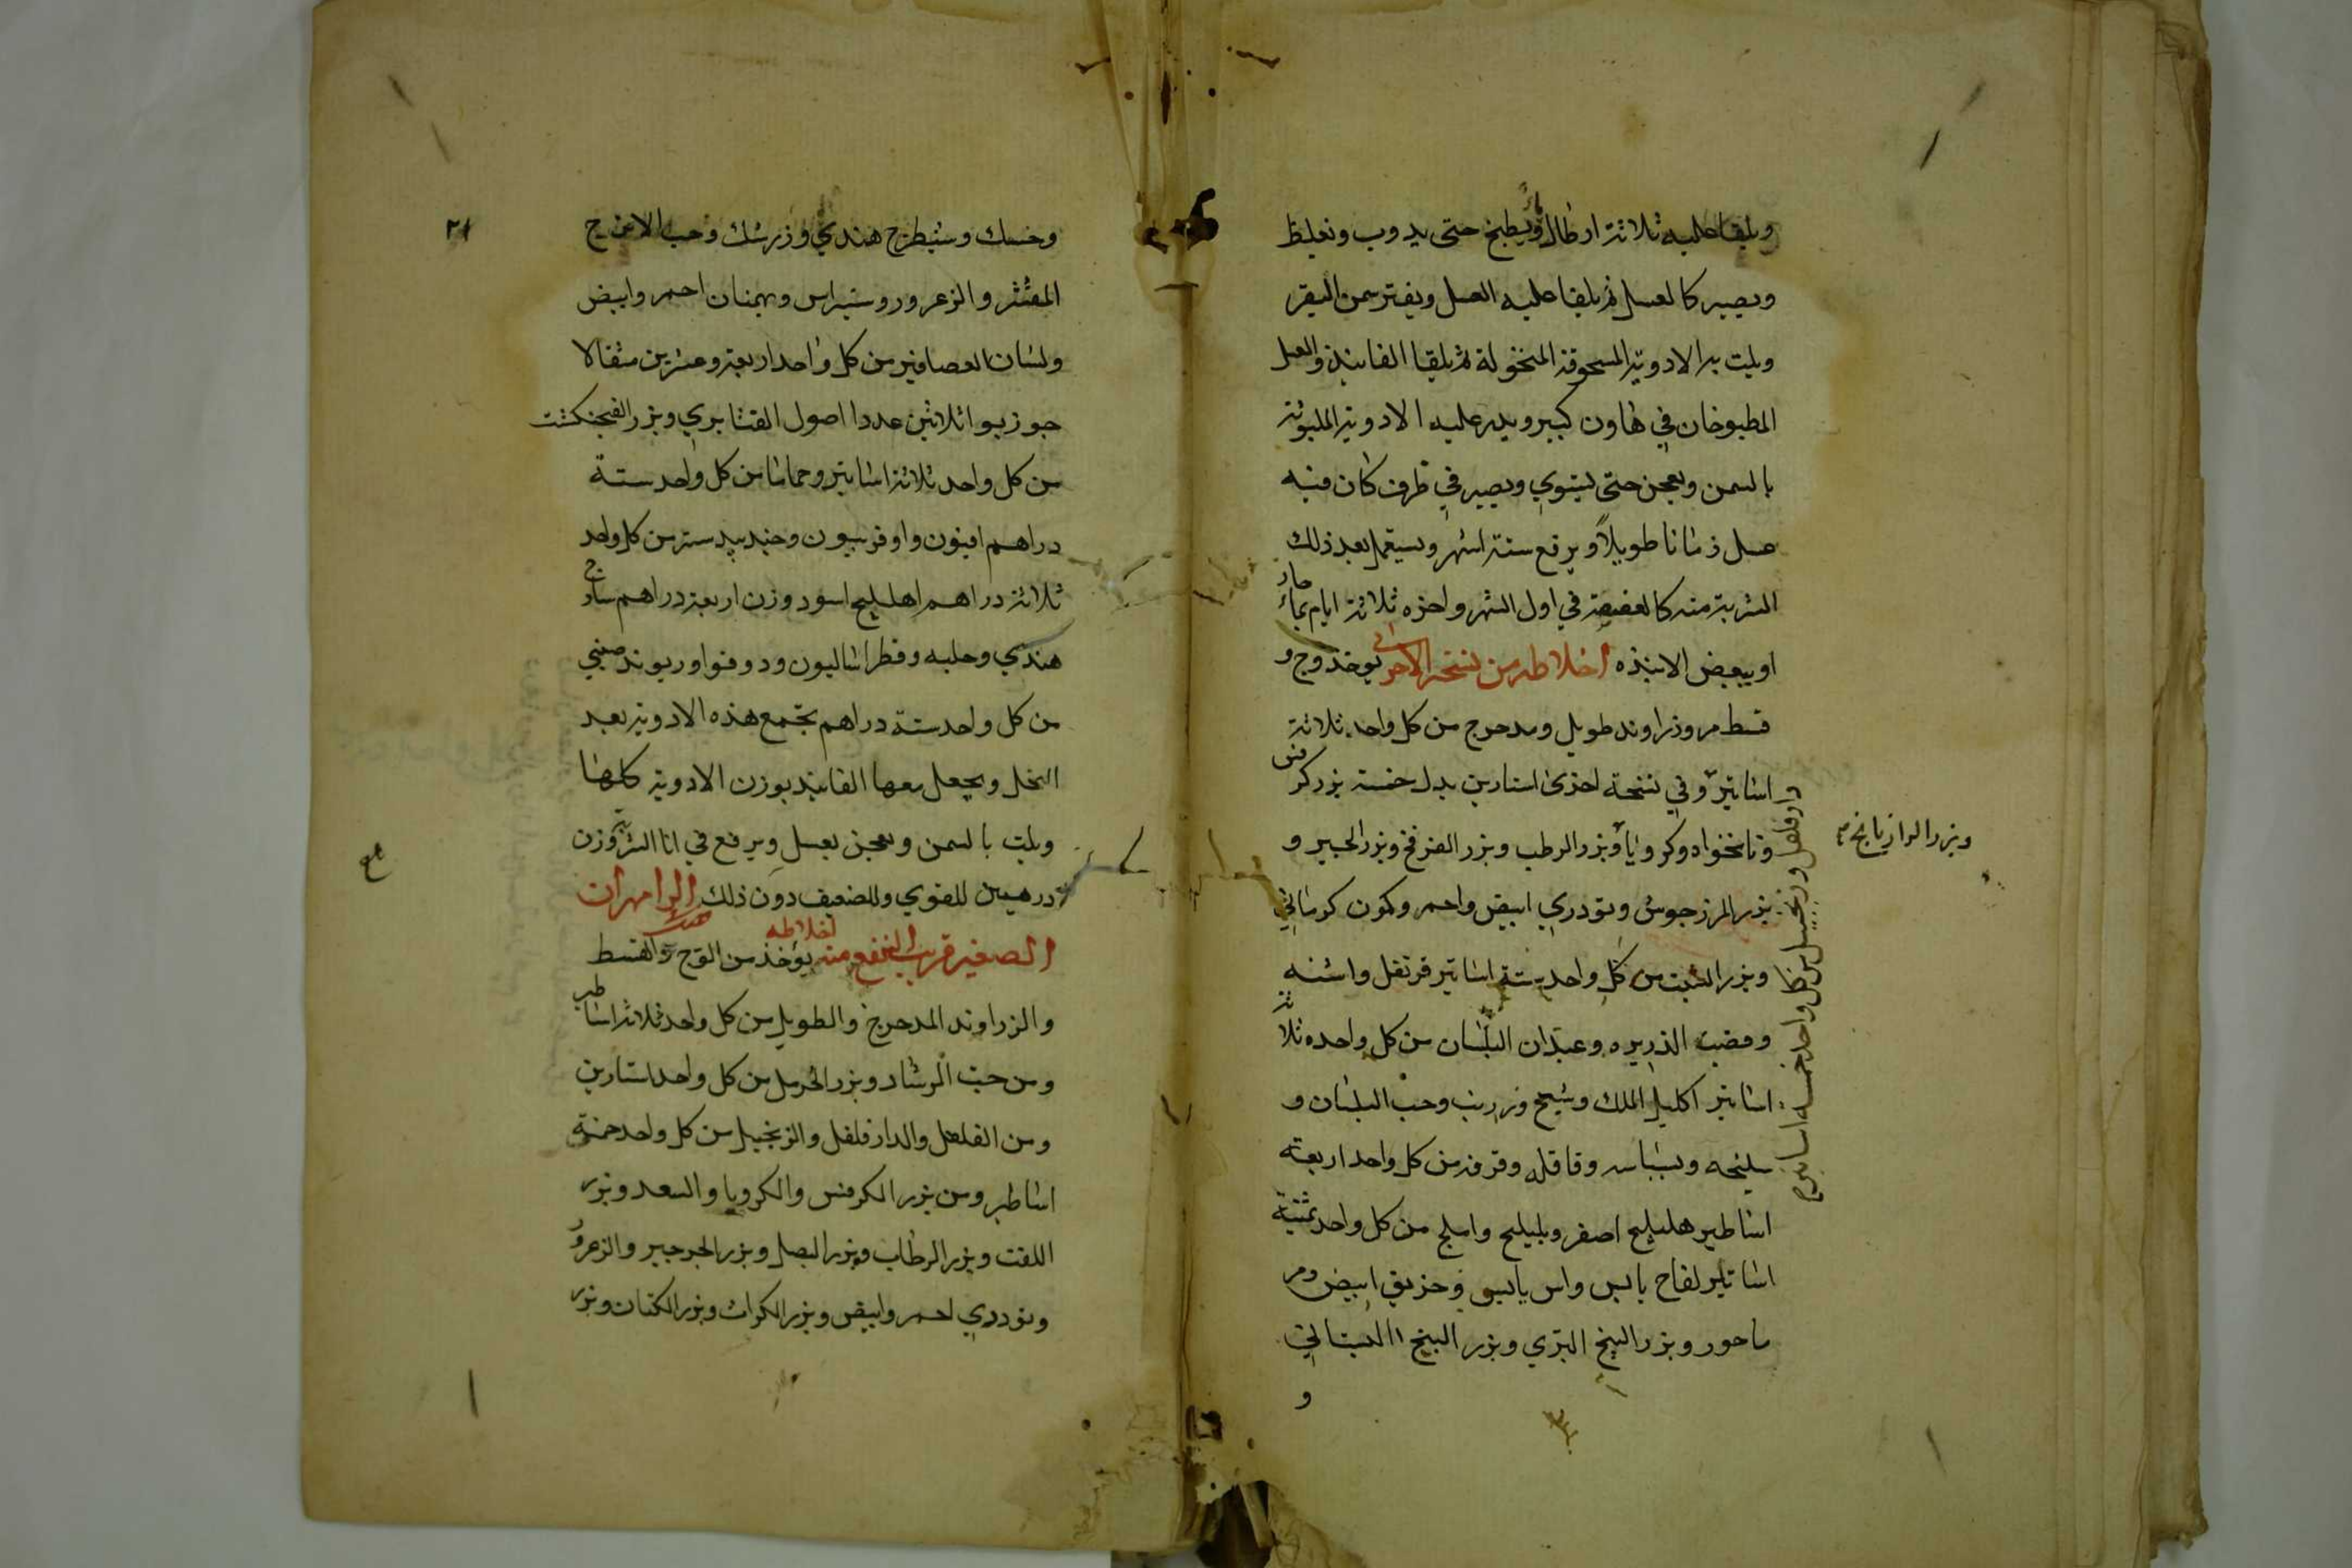 ويلقا عليه ثلاثة ارطال ماءً ويطبخ حتى يدوب ويغليظ
ويصير كالعسل ثم يلقا عليه العسل ويفتر سمن البقر
ويلت به الادوية المسحوقة المنخولة ثم يلقا الفانيذ والعسل
المطبوخان في هاون كبير ويدر عليه الادوية الملتوتة
بالسمن ويعجن حتى يستوي ويصير في ظرف كان فيه
عسل زمانا طويلاً ويرفع ستة اشهر ويستعمل بعد ذلك
الشربة منه كالعفصة في اول الشهر واخره ثلاثة ايام بماء حار
او ببعض الانبذه اخلاطه من نسخة الاخرى يوخذ وج و
قسط مر وزراوند طويل ومدحرج من كل واحد ثلاثة
اساتير وفي نسخة اخرى استارين بدل خمسة بزر كرفس
ونانخواه وكرويا وبزر الرطب وبزر الفرفخ وبزر الجبير و
بزر المرزجوش وتودري ابيض واحمر وكمون كرماني
وبزر الشبت من كل واحد ستة اساتير قرنفل واشنه
وقصب الذريره وعيدان البلسان من كل واحده ثلاثة
اساتير اكليل الملك وشيح وزرنب وحب البلسان و
سليخه وبسباسه وقاقله وقرفه من كل واحد اربعة
اساطير هليليج اصفر وبليليج واملج من كل واحد ثمنية
اساتير لفاح يابس واس يابس وخربق ابيض ومر
ماحور وبزر البنج البري وبزر البنج البستاني
و
وبزر الرازيانج
وفلفل وزنجبيل من كل واحد خمسة اساتير
٢١
وخسك وشيطرج هندي وزرشك وحب الاترج
المقشر والزعرور وشبراس وبهمنان احمر وابيض
ولسان العصافير من كل واحد اربعة وعشرين مثقالا
جوزبوا ثلاثين عددا اصول القثا بري وبزر الفنجنكشت
من كل واحد ثلاثة اساتير وحماما من كل واحد ستة
دراهم افيون واوفربيون وجندبيدستر من كل واحد
ثلاثة دراهم اهليليج اسود وزن اربعة دراهم سادج
هندي وحلبه وفطراساليون ودوقوا وريوند صيني
من كل واحد ستة دراهم تجمع هذه الادوية بعد
النخل ويجعل معها الفانيد بوزن الادوية كلها
ويلت بالسمن ويعجن بعسل ويرفع في انا الشربة وزن
درهمين للقوي وللضعيف دون ذلك الرامهران
الصغير قريب النفع منه اخلاطه يوخذ من الوج والقسط
والزراوند المدحرج والطويل من كل واحد ثلاثة اساطير
ومن حب الرشاد وبزر الحرمل من كل واحد استارين
ومن الفلفل والدارفلفل والزنجبيل من كل واحد خمسة
اساطير ومن بزر الكرفس والكرويا والسعد وبزر
اللفت وبزر الرطاب وبزر البصل وبزر الجرجير والزعرور
وتودري احمر وابيض وبزر الكراث وبزر الكتان وبزر